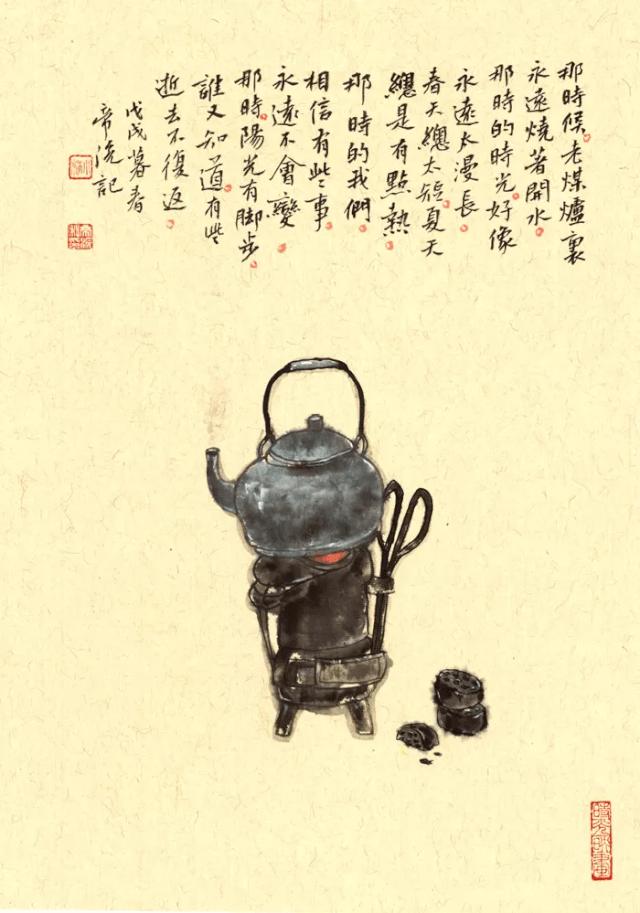 那時候老煤爐裏
永遠燒著開水
那時的時光好像
永遠太漫長
春天總太短夏天
總是有點熱
那時的我們
相信有些事
永遠不會變
那時陽光有脚步
誰又知道有些
逝去不復返
戊戌暮春
帝浣記